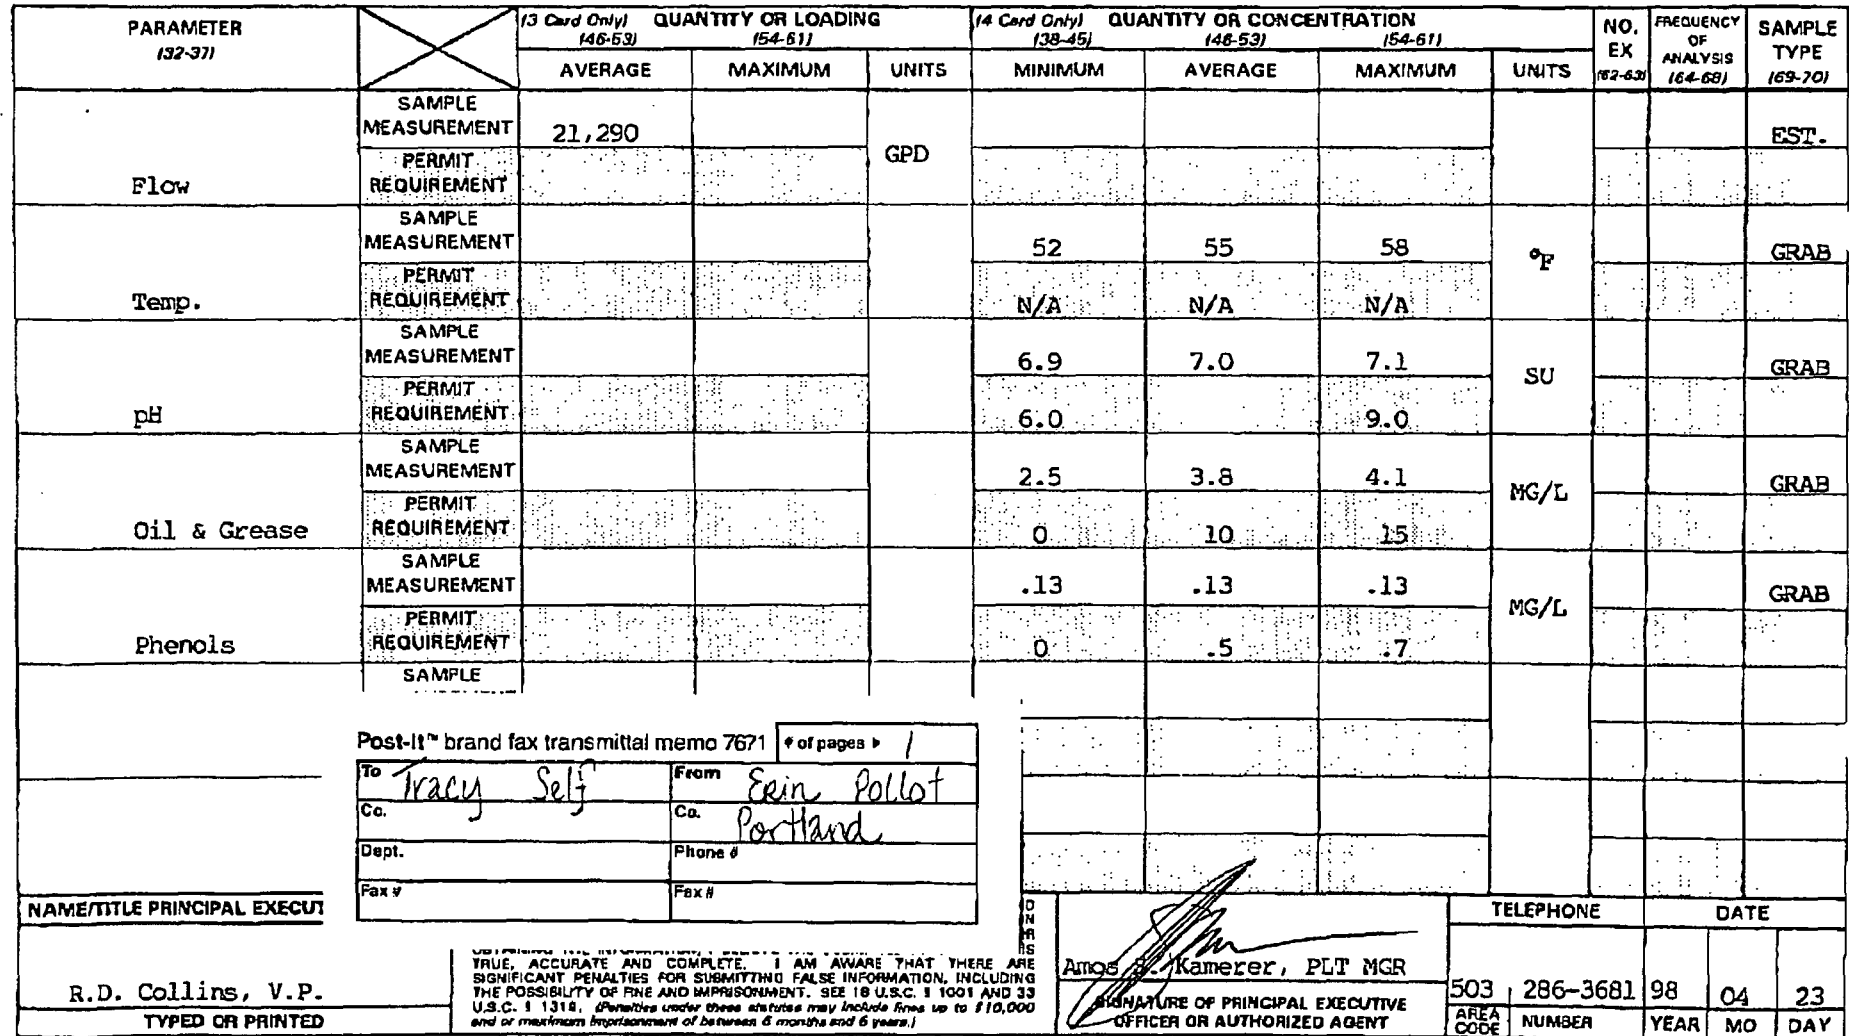 PARAMETER
(32-37)
(3 Card Only) QUANTITY OR LOADING
(46-53) (54-61)
AVERAGE MAXIMUM UNITS
(4 Card Only) QUANTITY OR CONCENTRATION
(38-45) (46-53) (54-61)
MINIMUM AVERAGE MAXIMUM UNITS
NO.
EX
(62-63)
FREQUENCY
OF
ANALYSIS
(64-68)
SAMPLE
TYPE
(69-70)
Flow
SAMPLE
MEASUREMENT 21,290 GPD EST.
PERMIT
REQUIREMENT
Temp.
SAMPLE
MEASUREMENT 52 55 58 °F GRAB
PERMIT
REQUIREMENT N/A N/A N/A
pH
SAMPLE
MEASUREMENT 6.9 7.0 7.1 SU GRAB
PERMIT
REQUIREMENT 6.0 9.0
Oil & Grease
SAMPLE
MEASUREMENT 2.5 3.8 4.1 MG/L GRAB
PERMIT
REQUIREMENT 0 10 15
Phenols
SAMPLE
MEASUREMENT .13 .13 .13 MG/L GRAB
PERMIT
REQUIREMENT 0 .5 .7
SAMPLE
Post-It™ brand fax transmittal memo 7671 # of pages ▸ 1
To Tracy Self From Erin Pollot
Co. Co. Portland
Dept. Phone #
Fax # Fax #
NAME/TITLE PRINCIPAL EXECUT
R.D. Collins, V.P.
TYPED OR PRINTED
TRUE, ACCURATE AND COMPLETE. I AM AWARE THAT THERE ARE
SIGNIFICANT PENALTIES FOR SUBMITTING FALSE INFORMATION, INCLUDING
THE POSSIBILITY OF FINE AND IMPRISONMENT. SEE 18 U.S.C. § 1001 AND 33
U.S.C. § 1319. (Penalties under these statutes may include fines up to $10,000
and or maximum imprisonment of between 6 months and 5 years.)
Amos Kamerer, PLT MGR
SIGNATURE OF PRINCIPAL EXECUTIVE
OFFICER OR AUTHORIZED AGENT
TELEPHONE
503 286-3681
AREA
CODE NUMBER
DATE
98 04 23
YEAR MO DAY